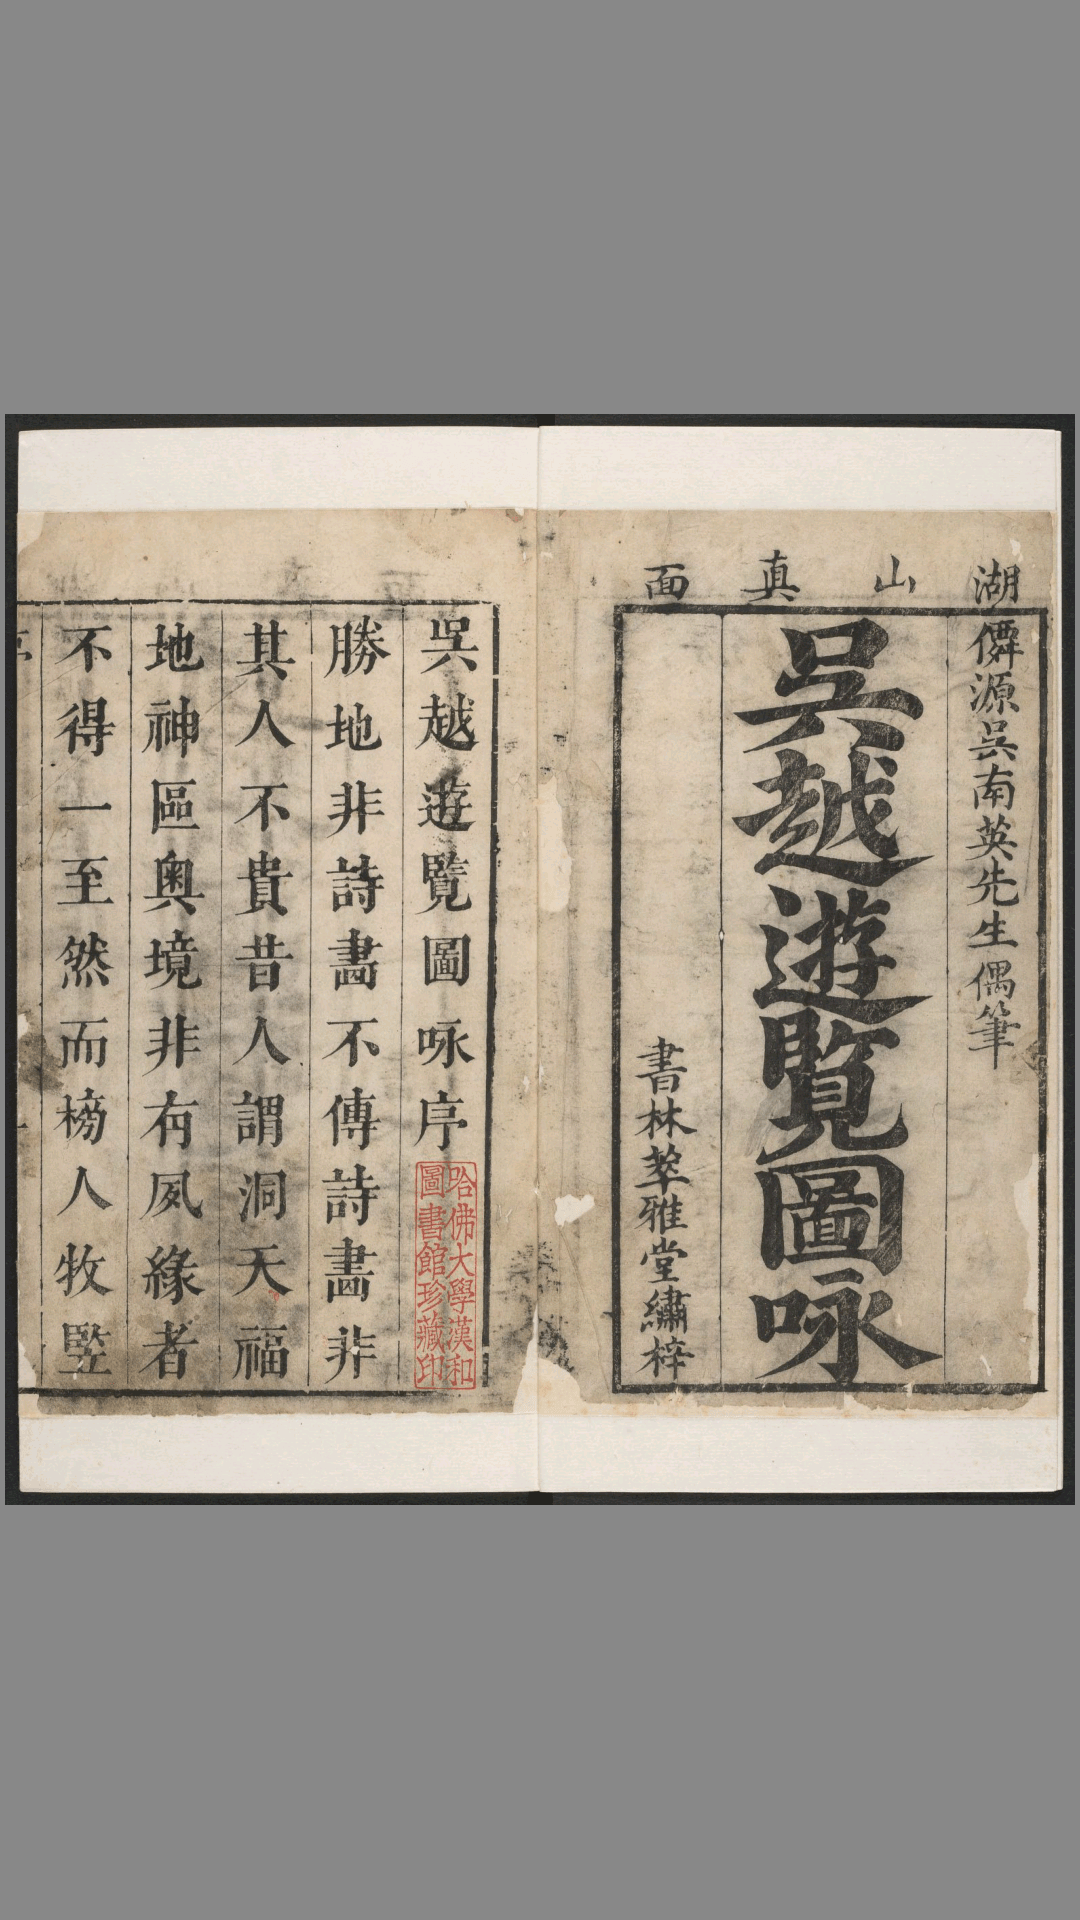 湖山真面
僊源吳南英先生偶筆
吳越遊覽圖咏
書林萃雅堂繡梓
吳越遊覽圖咏序
哈佛大學漢和
圖書館珍藏印
勝地非詩畵不傳詩畵非
其人不貴昔人謂洞天福
地神區奧境非有夙緣者
不得一至然而榜人牧竪